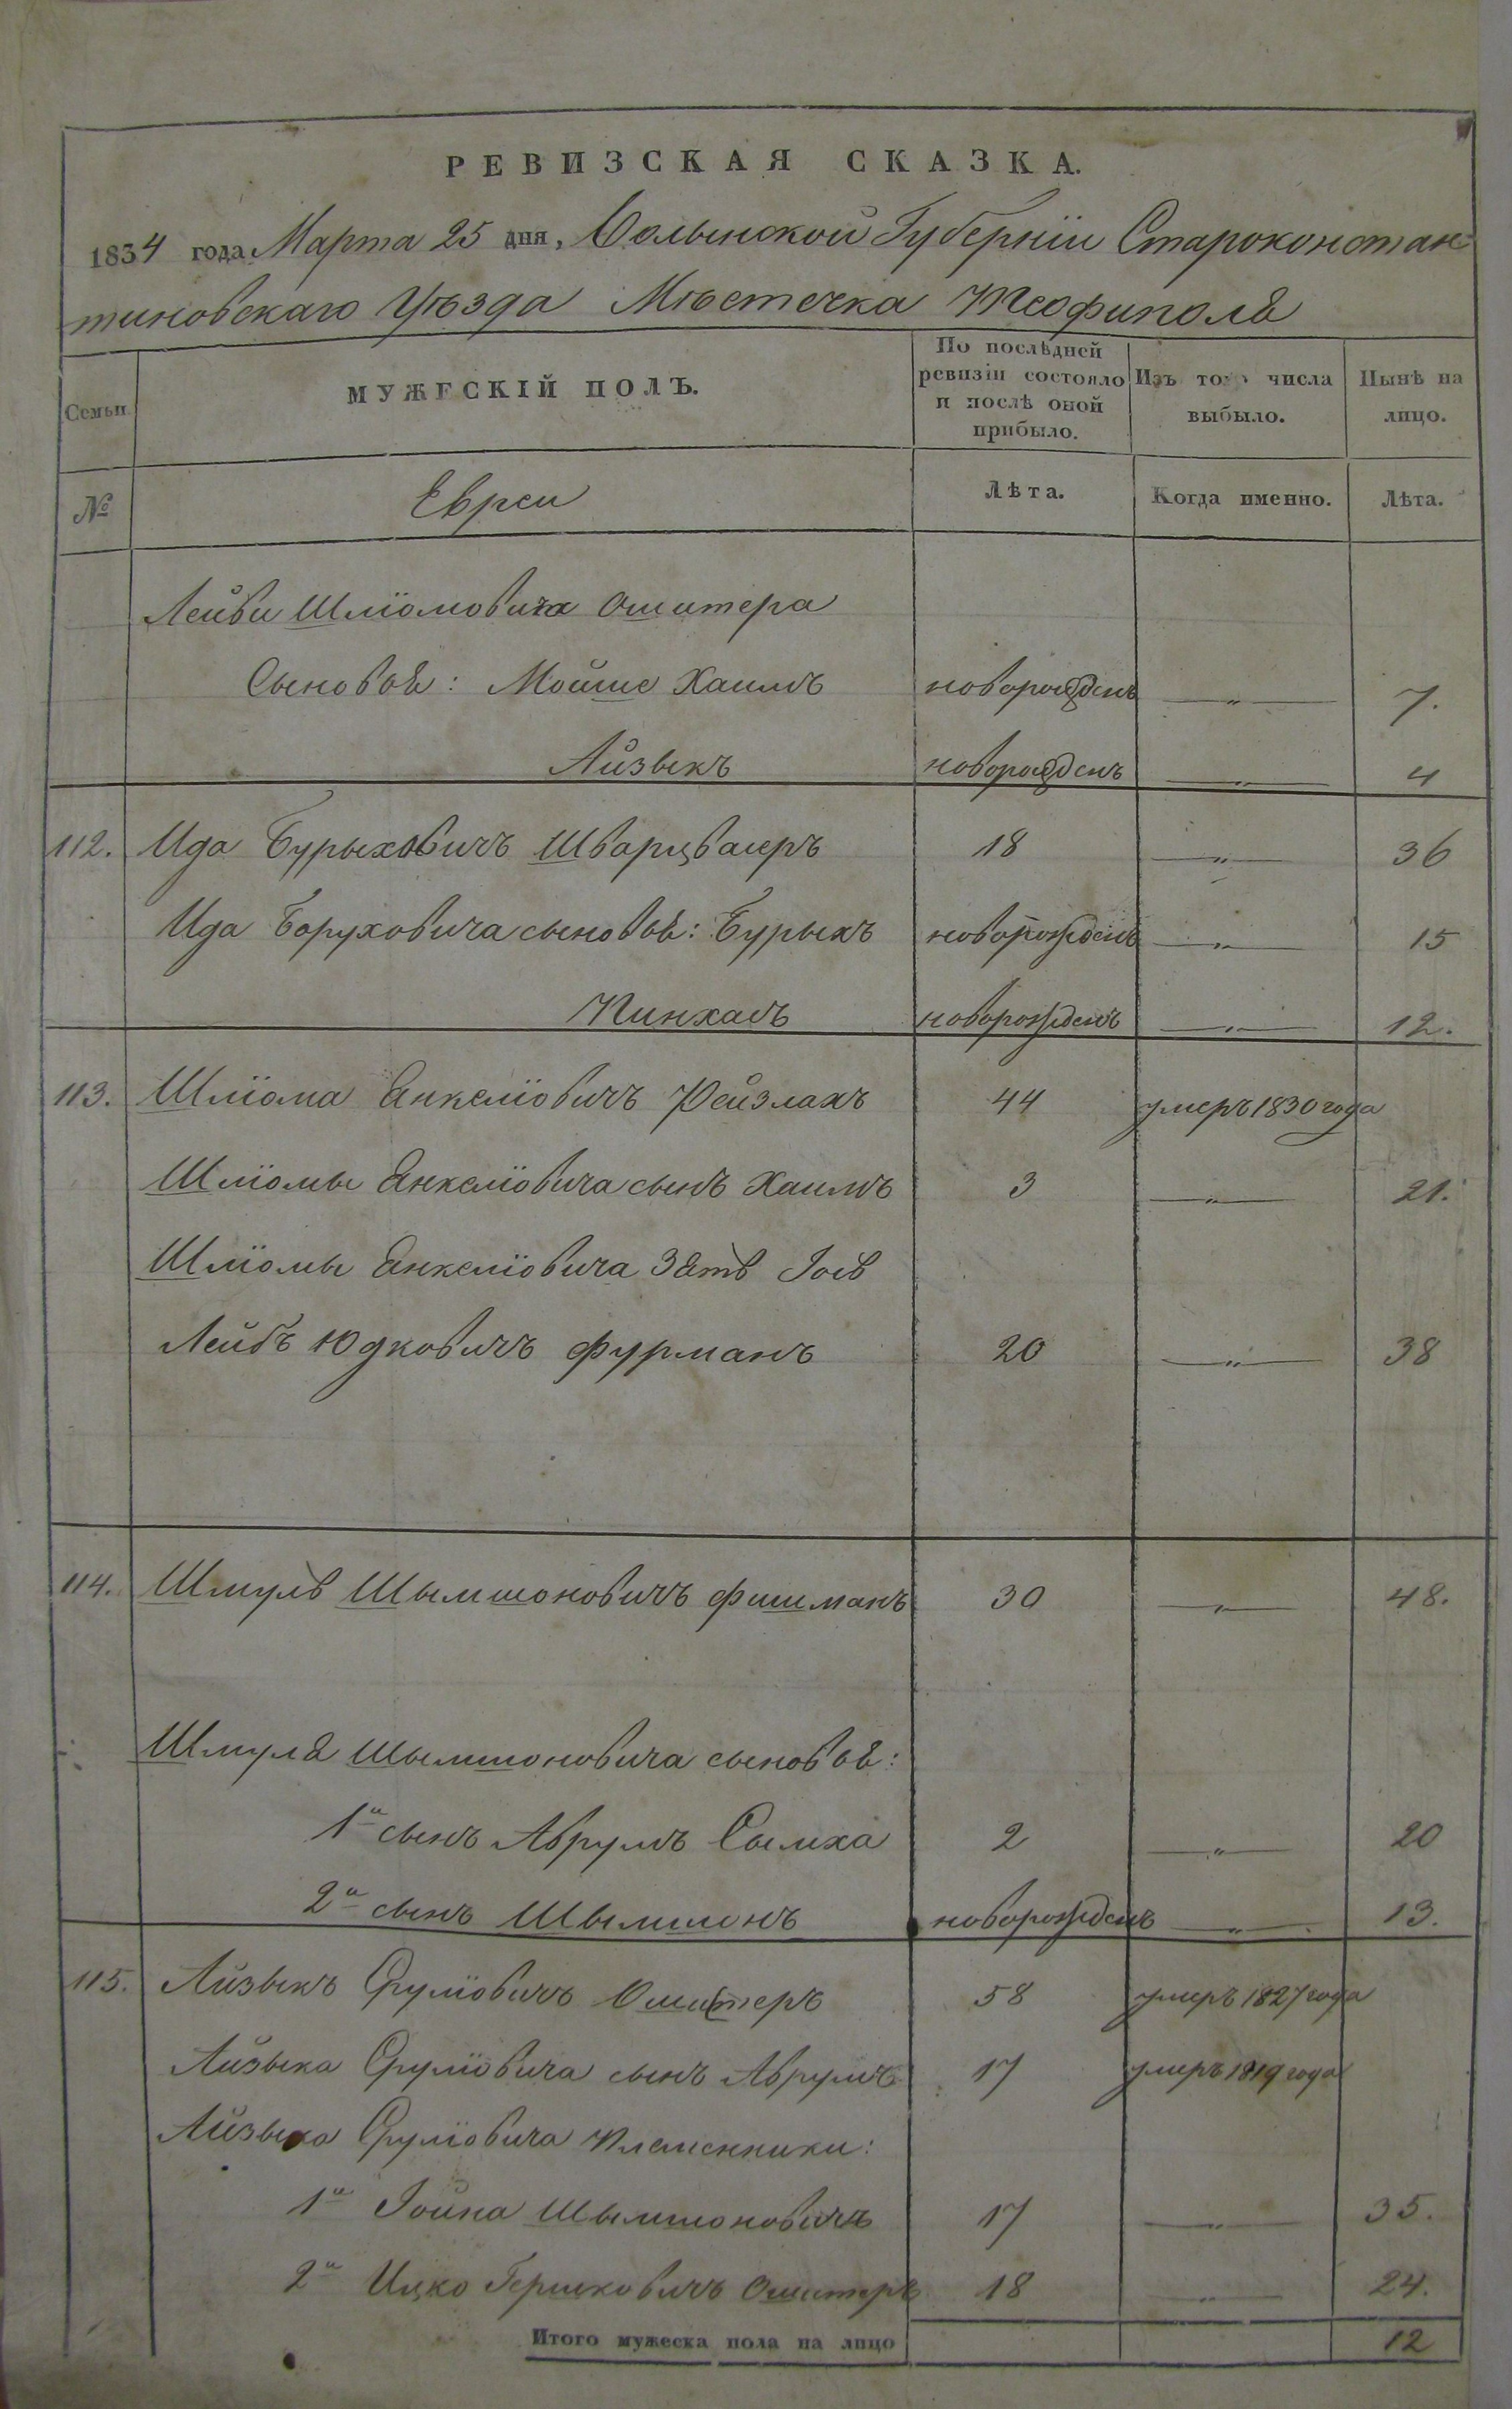 РЕВИЗСКАЯ СКАЗКА.
1834 года Марта 25 дня, Волынской Губерніи Староконстан
тиновскаго Уѣзда Мѣстечка Теофиполя
Семьи
МУЖЕСКІЙ ПОЛЪ.
По послѣдней ревизіи состояло и послѣ оной прибыло.
Изъ того числа выбыло.
Нынѣ на лицо.
№ Евреи Лѣта. Когда именно. Лѣта.
Лейби Шліомовича Ошитера
Сыновья: Мойше Хаимъ новорожденъ —„— 7.
Айзыкъ новорожденъ —„— 4
112. Ида Бурыховичъ Шварцваеръ 18 —„— 36
Ида Боруховича сыновья: Бурыхъ новорожденъ —„— 15
Пинхасъ новорожденъ —„— 12.
113. Шліома Янкеліовичъ Рейзлахъ 44 умеръ 1830 года
Шліомы Янкеліовича сынъ Хаимъ 3 —„— 21.
Шліомы Янкеліовича Зять Іось
Лейбъ Юдковичъ Фурманъ 20 —„— 38
114. Шмуль Шымшоновичъ Фишманъ 30 —„— 48.
Шмуля Шымшоновича сыновья:
1й сынъ Аврумъ Сымха 2 —„— 20
2й сынъ Шымшонъ новорожденъ —„— 13.
115. Айзыкъ Сруліовичъ Ошитеръ 58 умеръ 1827 года
Айзыка Сруліовича сынъ Аврумъ 17 умеръ 1819 года
Айзыка Сруліовича племенники:
1й Іойна Шымшоновичъ 17 —„— 35.
2й Ицко Гершковичъ Ошитеръ 18 —„— 24.
Итого мужеска пола на лицо 12